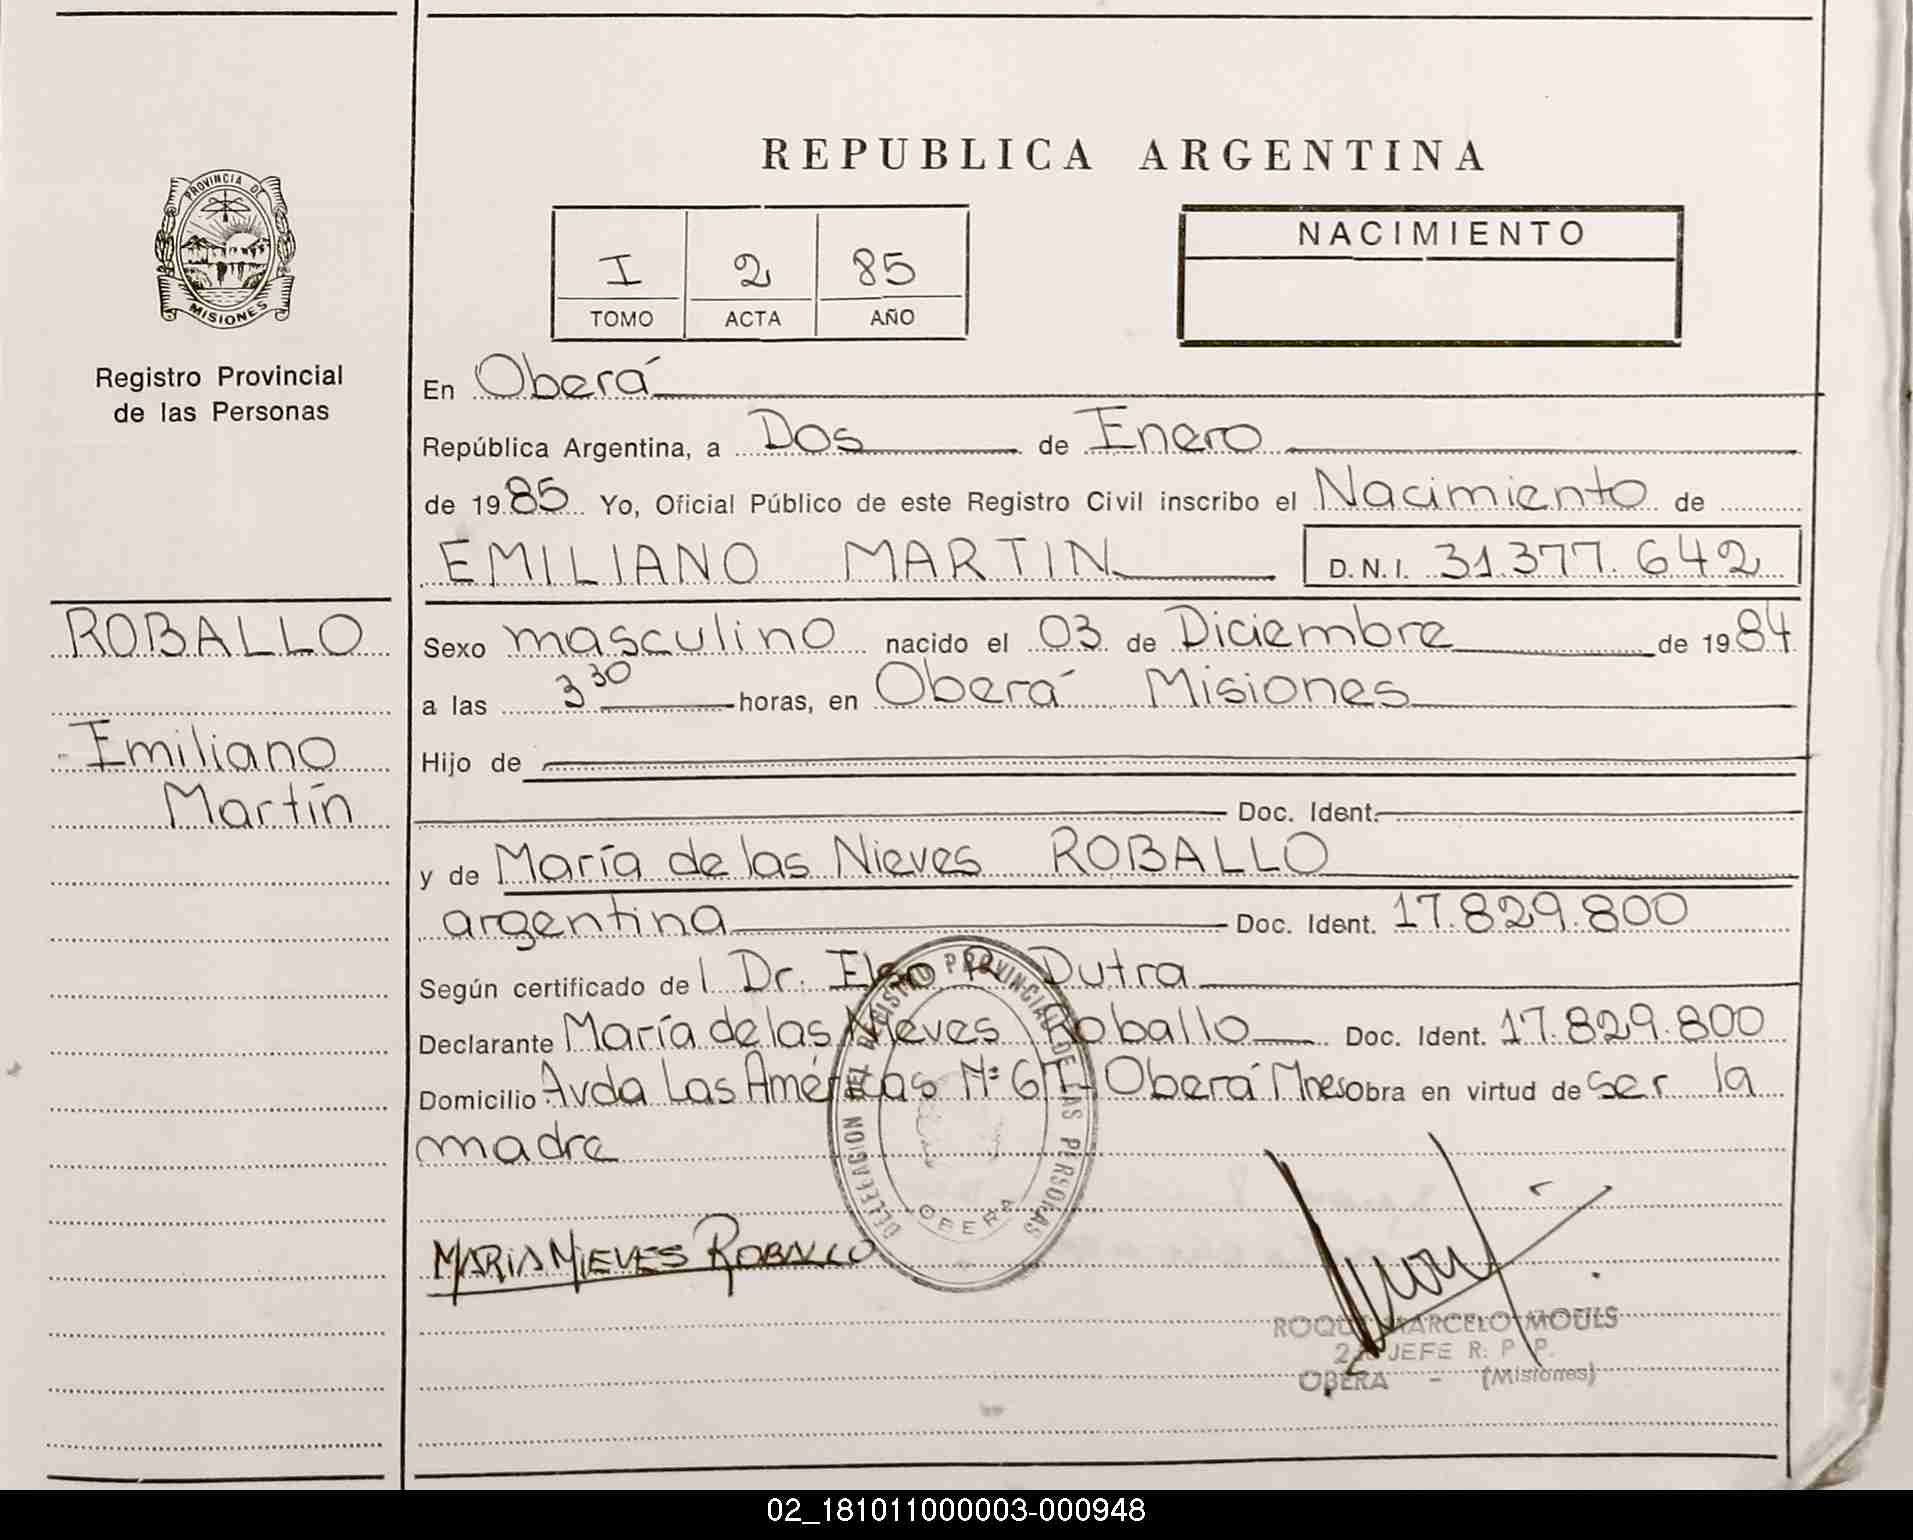 REPUBLICA ARGENTINA
PROVINCIA DE
MISIONES
Registro Provincial
de las Personas
I 2 85
TOMO ACTA AÑO
NACIMIENTO
En Oberá
República Argentina, a Dos de Enero
de 1985 Yo, Oficial Público de este Registro Civil inscribo el Nacimiento de
EMILIANO MARTIN D.N.I. 31.377.642
ROBALLO
Emiliano
Martín
Sexo masculino nacido el 03 de Diciembre de 1984
a las 3 30 horas, en Oberá Misiones
Hijo de
Doc. Ident.
y de María de las Nieves ROBALLO
argentina Doc. Ident. 17.829.800
Según certificado del Dr. Elso R. Dutra
Declarante María de las Nieves Roballo Doc. Ident. 17.829.800
Domicilio Avda Las Américas Nº Oberá Mnes obra en virtud de ser la
madre
DELEGACION DEL REGISTRO PROVINCIAL DE LAS PERSONAS
OBERA
MARIA NIEVES ROBALLO
ROQUE MARCELO MOULS
JEFE R. P. P.
OBERA - (Misiones)
02_181011000003-000948